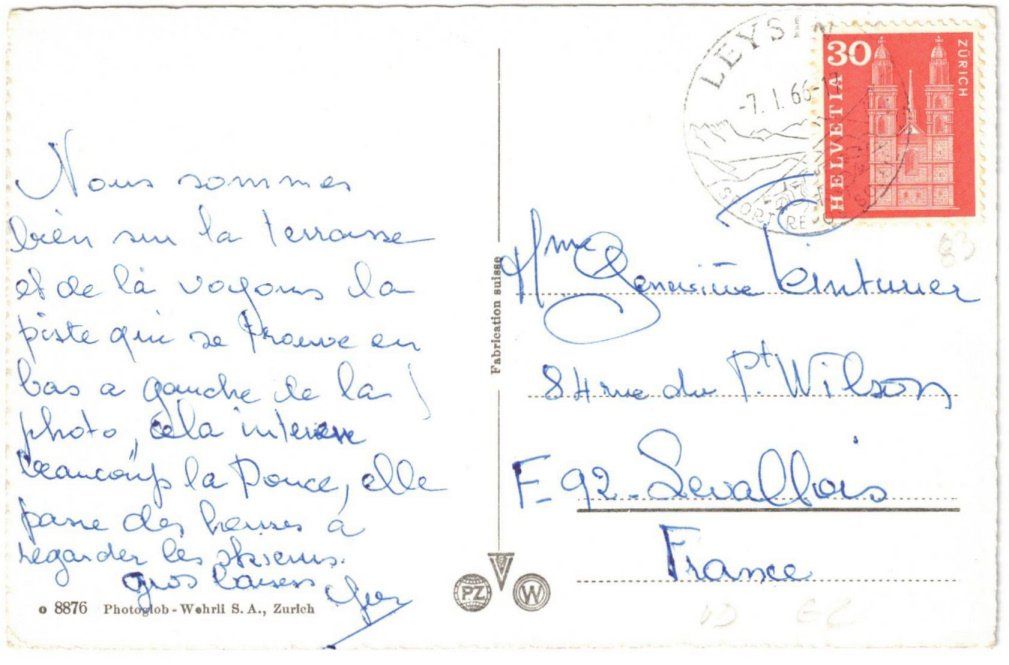 Nous sommes
bien sur la terrasse
et de là voyons la
piste qui se trouve en
bas a gauche de la
photo, cela interesse
beaucoup la Douce, elle
passe des heures à
regarder les skieurs.
gros baisers
o 8876 Photoglob - Wehrli S. A., Zurich
Fabrication suisse
PZ
W
LEYSIN
-7. 1. 66-17
SPORT REPOS
30
HELVETIA
ZÜRICH
Mme Geneviève
84 rue du Pt Wilson
F-92-Levallois
France